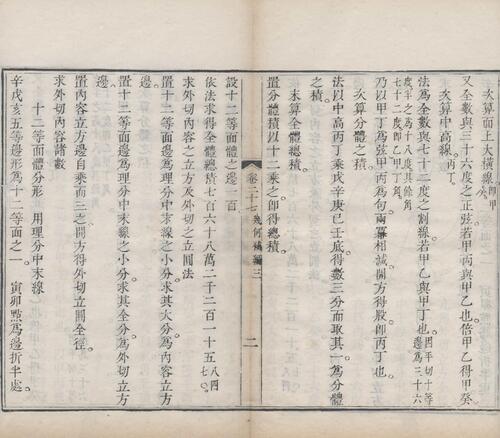 次算面上大橫線即甲癸
又全數與三十六度之正弦若甲丙與甲乙也倍甲乙得甲癸
次算中高線丙丁
法爲全數與七十二度之割線若甲乙與甲丁也因平切十等邊爲三十六
度半之爲十八度其餘角七十二度即乙甲丁角
乃以甲丁爲弦甲丙爲句兩冪相減開方得股即丙丁也
次算分體之積
法以中高丙丁乘戌辛庚巳壬底得數三分而取其一爲分體
之積
末算全體總積
置分體積以十二乘之即得總積
卷二十七幾何補編三 二
設十二等面體之邊一百
依法求得全體積七百六十八萬二千二百一十五八四七
求外切內容之立方及外切之立圓法
置十二等面邊爲理分中末線之小分求其大分爲內容立方
邊
置十二等面邊爲理分中末線之小分求其全分爲外切立方
邊
置內容立方邊自乘而三之開方得外切立圓全徑
求外切內容諸數
十二等面體分形 用理分中末線
辛戌亥五等邊形爲十二等面之一 寅卯點爲邊折半處